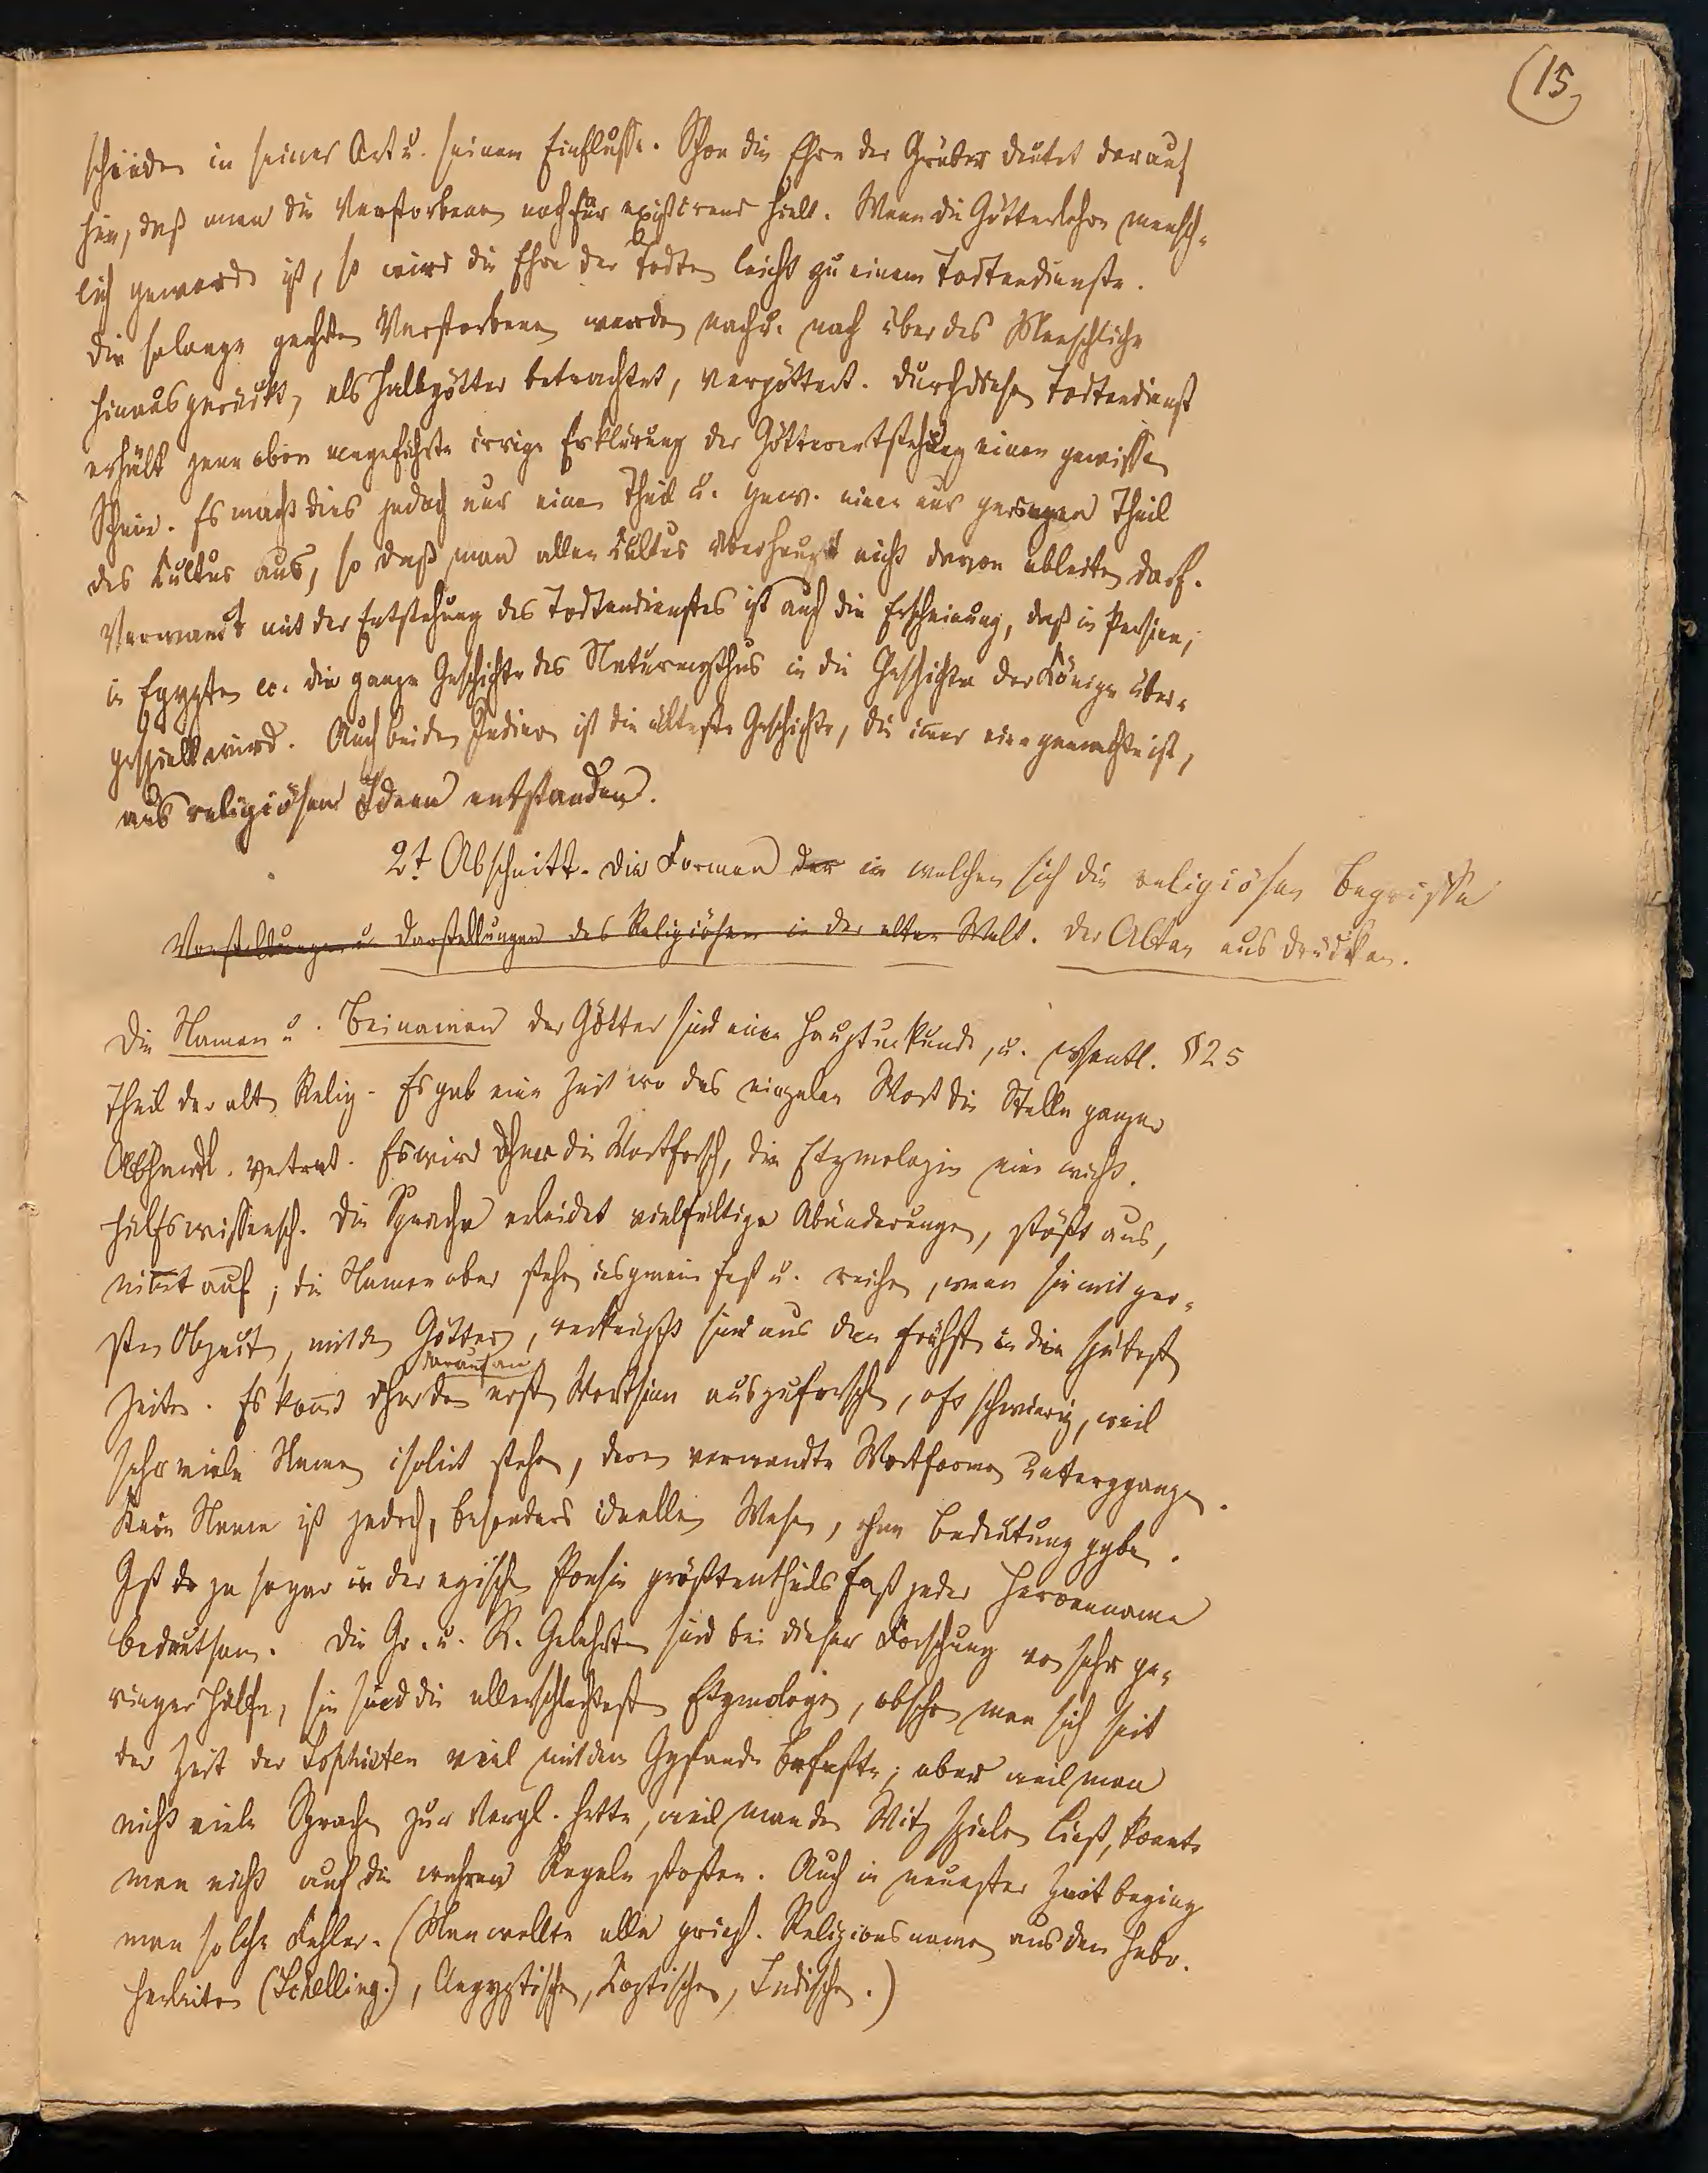 15
schieden in seiner Art u. seinem Einflusse. Schon die Ehre der Gräber deutet darauf
hin, daß man die Verstorbenen noch für existirend hielt. Wenn die Götterlehre mensch-
lich geworden ist, so wird die Ehre der Todten leicht zu einem Todtendienste.
Die solange geehrten Verstorbenen werden nach u. nach über das Menschliche
hinausgerückt, als Halbgötter betrachtet, vergöttert. Durch diesen Todtendienst
erhält jene oben angeführte irrige Erklärung der Götterentstehung einen gewissen
Schein. Es macht dies jedoch nur einen Theil u. zwar einen nur geringen Theil
des Kultus aus, so daß man allen Kultus überhaupt nicht davon ableiten darf.
Verwandt mit der Entstehung des Todtendienstes ist auch die Erscheinung, daß in Persien,
in Egypten etc. die ganze Geschichte des Naturmythus in die Geschichte der Könige über-
gespielt wird. Auch bei den Indiern ist die älteste Geschichte, die immer eine gemachte ist,
aus religiösen Ideen entstanden.
2t. Abschnitt. Die Formen der in welchen sich die religiösen Begriffe
Vorstellungen u. Darstellungen des Religiösen in der alten Welt. der Alten ausdrücken.
Die Namen u. Beinamen der Götter sind eine Haupturkunde, u. wesentl. §25
Theil der alt. Relig. Es gab eine Zeit wo das einzelne Wort die Stelle ganzer
Abhandl. vertrat. Es wird daher die Wortforsch, die Etymologie eine wicht.
Hülfswissensch. Die Sprache erleidet vielfältige Abänderungen, stößt aus,
nimmt auf; die Namen aber stehen insgemein fest u. reichen, wenn sie mit
sten Objecten, mit den Göttern, verknüpft sind aus den frühsten in die spätesten
Zeiten. Es kommt daher darauf an den ersten Wortsinn auszuforschen, oft schwierig, weil
sehr viele Namen isolirt stehen, deren verwandte Wortformen untergegangen.
Kein Name ist jedoch, besonders ideellen Wesen, ohne Bedeutung gegeben.
Ist da ja sogar in der epischen Poesie größtentheils fast jeder Heroenname
bedeutsam. Die Gr. u. R. Gelehrten sind bei dieser Forschung von sehr ge-
ringer Hülfe, sie sind die allerschlechtesten Etymologen, obschon man sich seit
der Zeit der Sophisten viel mit dem Gegenstande befaßte; aber weil man
nicht viele Sprachen zur Vergl. hatte, weil man den Witz spielen ließ, konnte
man nicht auf die wahren Regeln stoßen. Auch in neuester Zeit beging
man solche Fehler. (Man wollte alle griech. Religionsnamen aus dem Hebr.
herleiten (Schelling.), Aegyptischen, Koptischen, Indischen.)